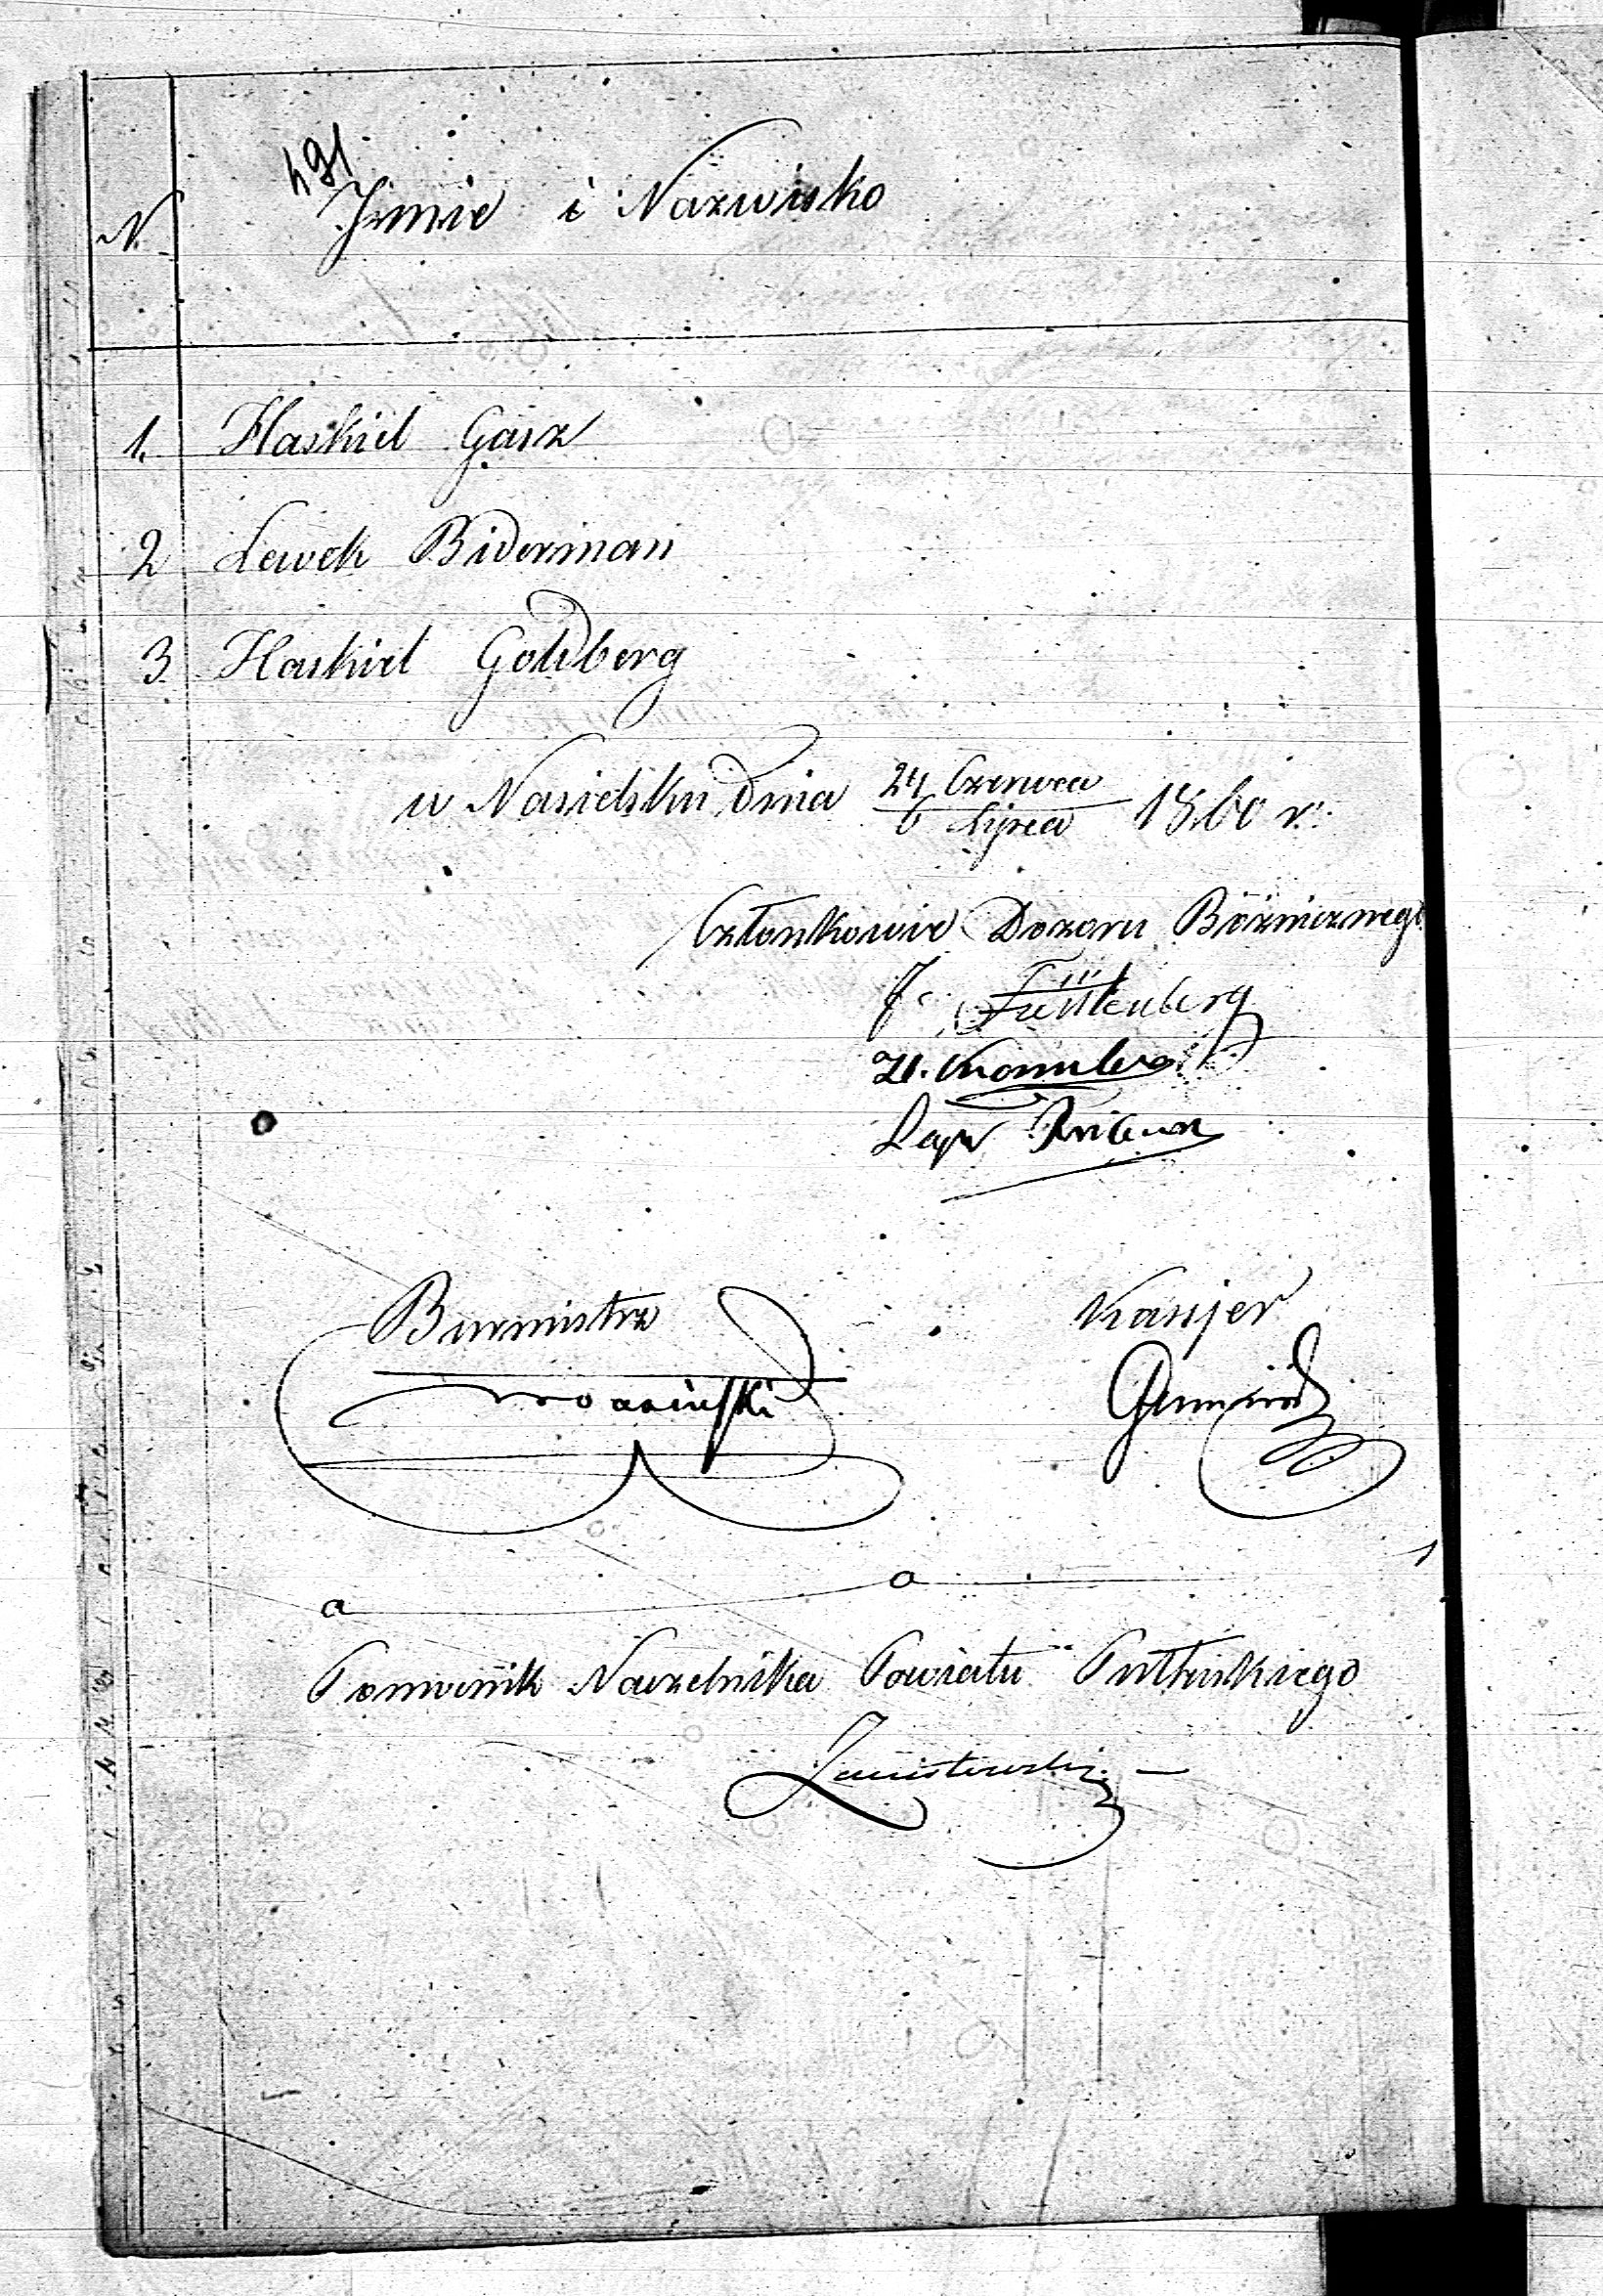 491
N. Jmie i Nazwisko
1. Haskiel Gasz
2 Lewek Biderman
3 Haskiel Goldberg
w Nasielsku dnia 24 Czerwca / 6 Lipca 1860 r.
Członkowie Dozoru Bóżnicznego
J. Fürstenberg
Burmistrz
Kassjer
Pomocnik Naczelnika Powiatu Pułtuskiego